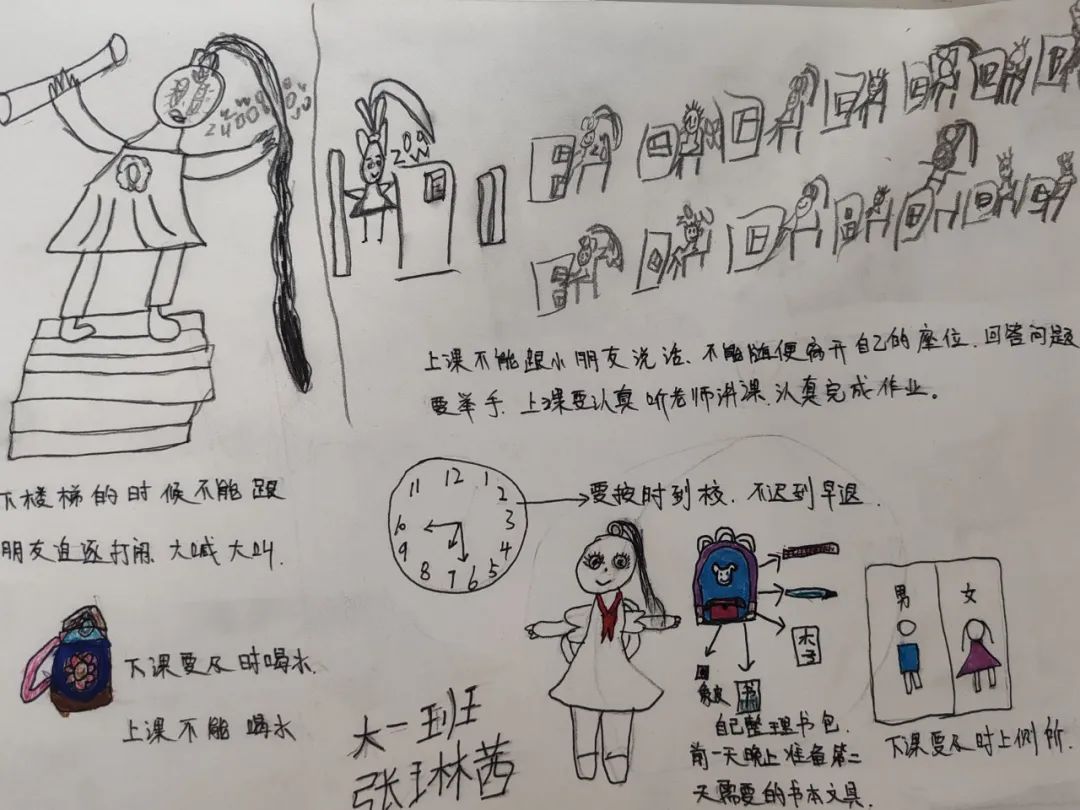 2400
200
上课不能跟小朋友说话、不能随便离开自己的座位、回答问题
要举手、上课要认真听老师讲课、认真完成作业。
下楼梯的时候不能跟
朋友追逐打闹、大喊大叫.
11 12 1
2
3
4
5
6
7
8
9
10
要按时到校、不迟到早退.
男 女
本子
书
自己整理书包.
前一天晚上准备第二
天需要的书本文具.
下课要及时上侧所.
下课要及时喝水
上课不能喝水
大一班
张琳茜